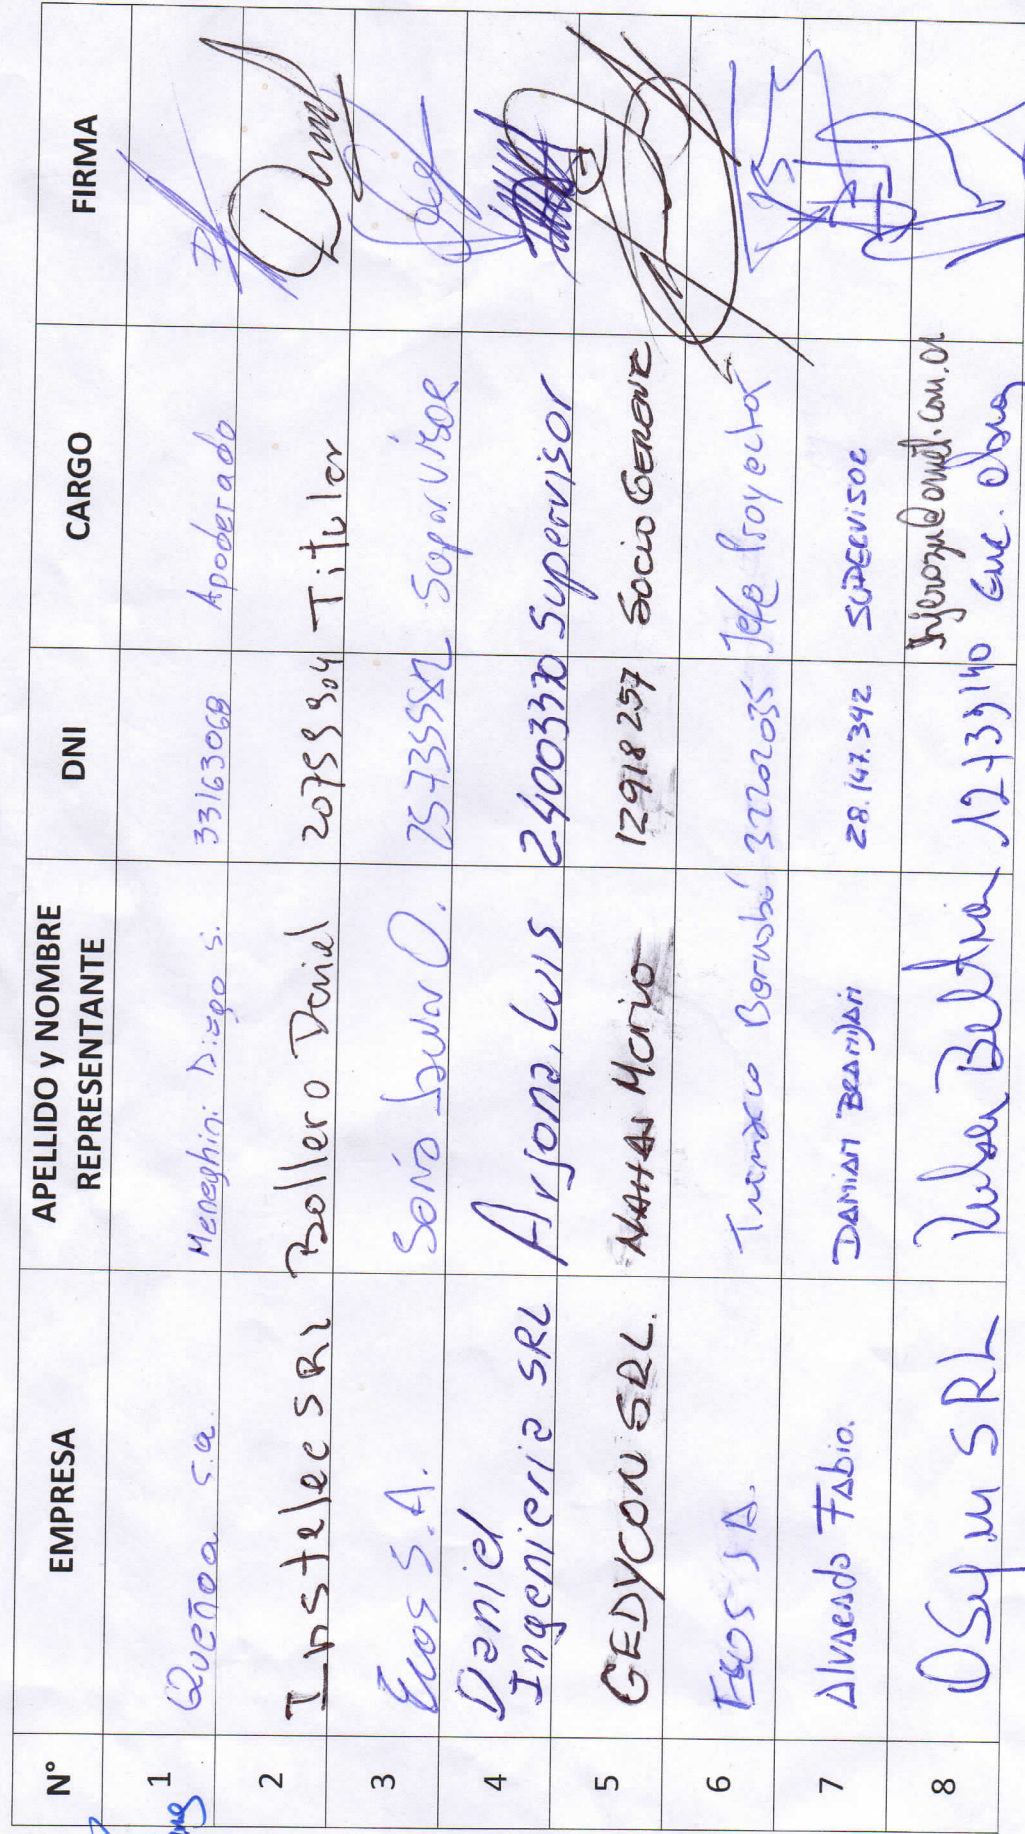 N° EMPRESA APELLIDO y NOMBRE REPRESENTANTE DNI CARGO FIRMA
1 Queñoa s.a. Meneghini Diego S. 33163068 Apoderado
2 Instelec SRL Bollero Daniel 20759304 Titular
3 Ecos S.A. 25735582 Supervisor
4 Daniel Ingenieria SRL Arjona, Luis 24003370 Supervisor
5 GEDYCON SRL. NAHAS Mario 12918257 Socio GERENTE
6 Ecos SA. Bernabé 32202035 Jefe Proyecto
7 Alvarado Fabio. DAMIAN 28.147.342 SUPERVISOR
8 SRL Ruben Beltran 12739140